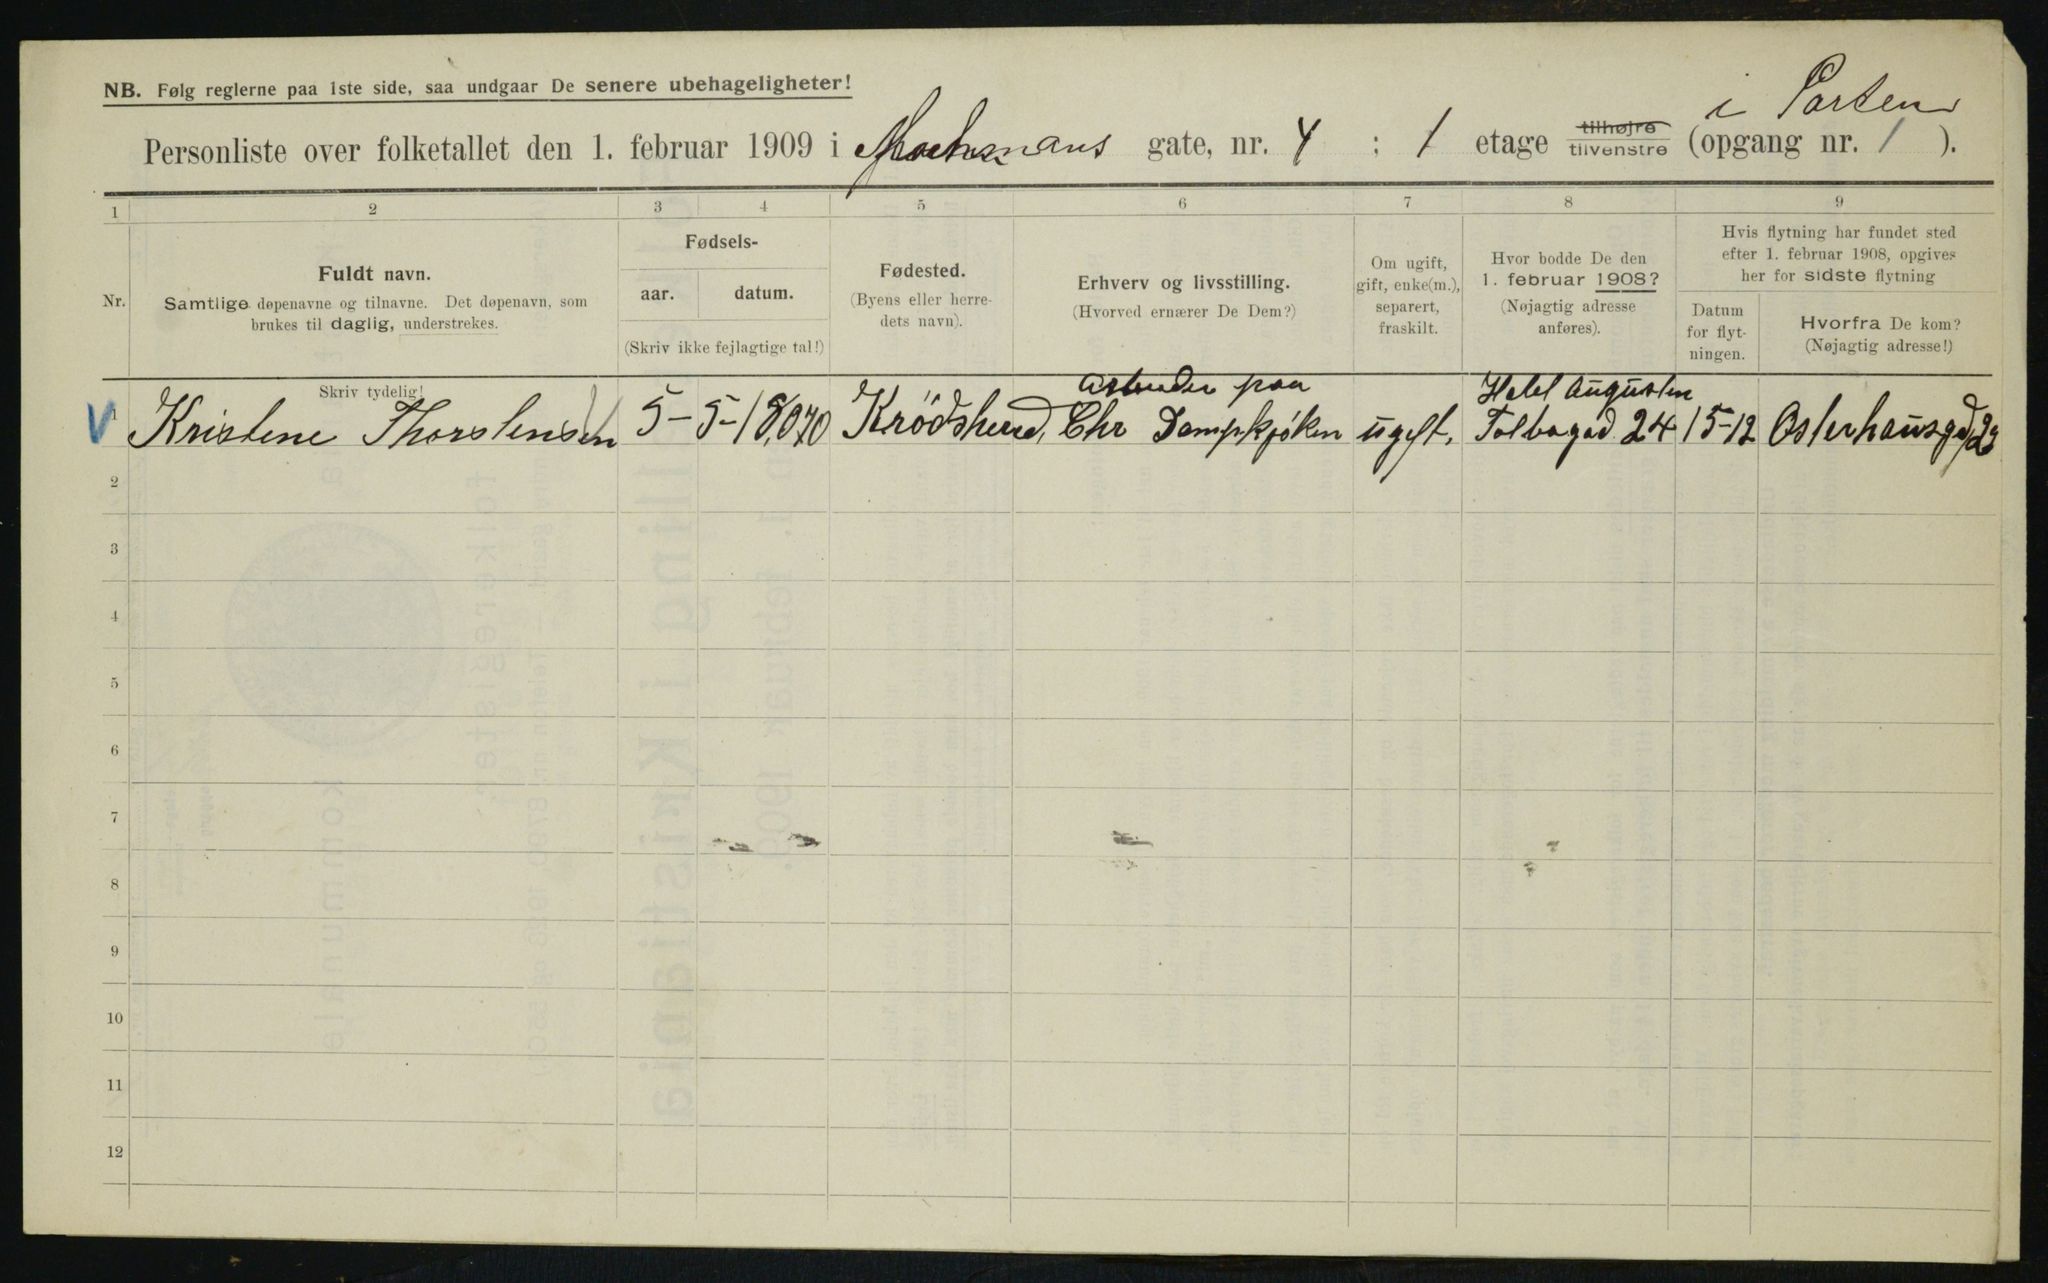 NB. Følg reglerne paa 1ste side, saa undgaar De senere ubehageligheter!
i Porten
Personliste over folketallet den 1. februar 1909 i gate, nr. 4 : 1 etage tilhøjre tilvenstre (opgang nr. 1 ).
1 2 3 4 5 6 7 8 9
Nr.
Fuldt navn.
Samtlige døpenavne og tilnavne. Det døpenavn, som
brukes til daglig, understrekes.
Skriv tydelig!
Fødsels-
aar. datum.
(Skriv ikke fejlagtige tal!)
Fødested.
(Byens eller herre-
dets navn).
Erhverv og livsstilling.
(Hvorved ernærer De Dem?)
Om ugift,
gift, enke(m.),
separert,
fraskilt.
Hvor bodde De den
1. februar 1908?
(Nøjagtig adresse
anføres).
Hvis flytning har fundet sted
efter 1. februar 1908, opgives
her for sidste flytning
Datum
for flyt-
ningen.
Hvorfra De kom?
(Nøjagtig adresse!)
V 1 Kristene Thorstensen 5-5-1870 Krödsherred, Arbeider paa Chr Dampkjøken ugift, Hotel Augustin Tolbogad 24 15-12 Osterhausgd
2
3
4
5
6
7
8
9
10
11
12